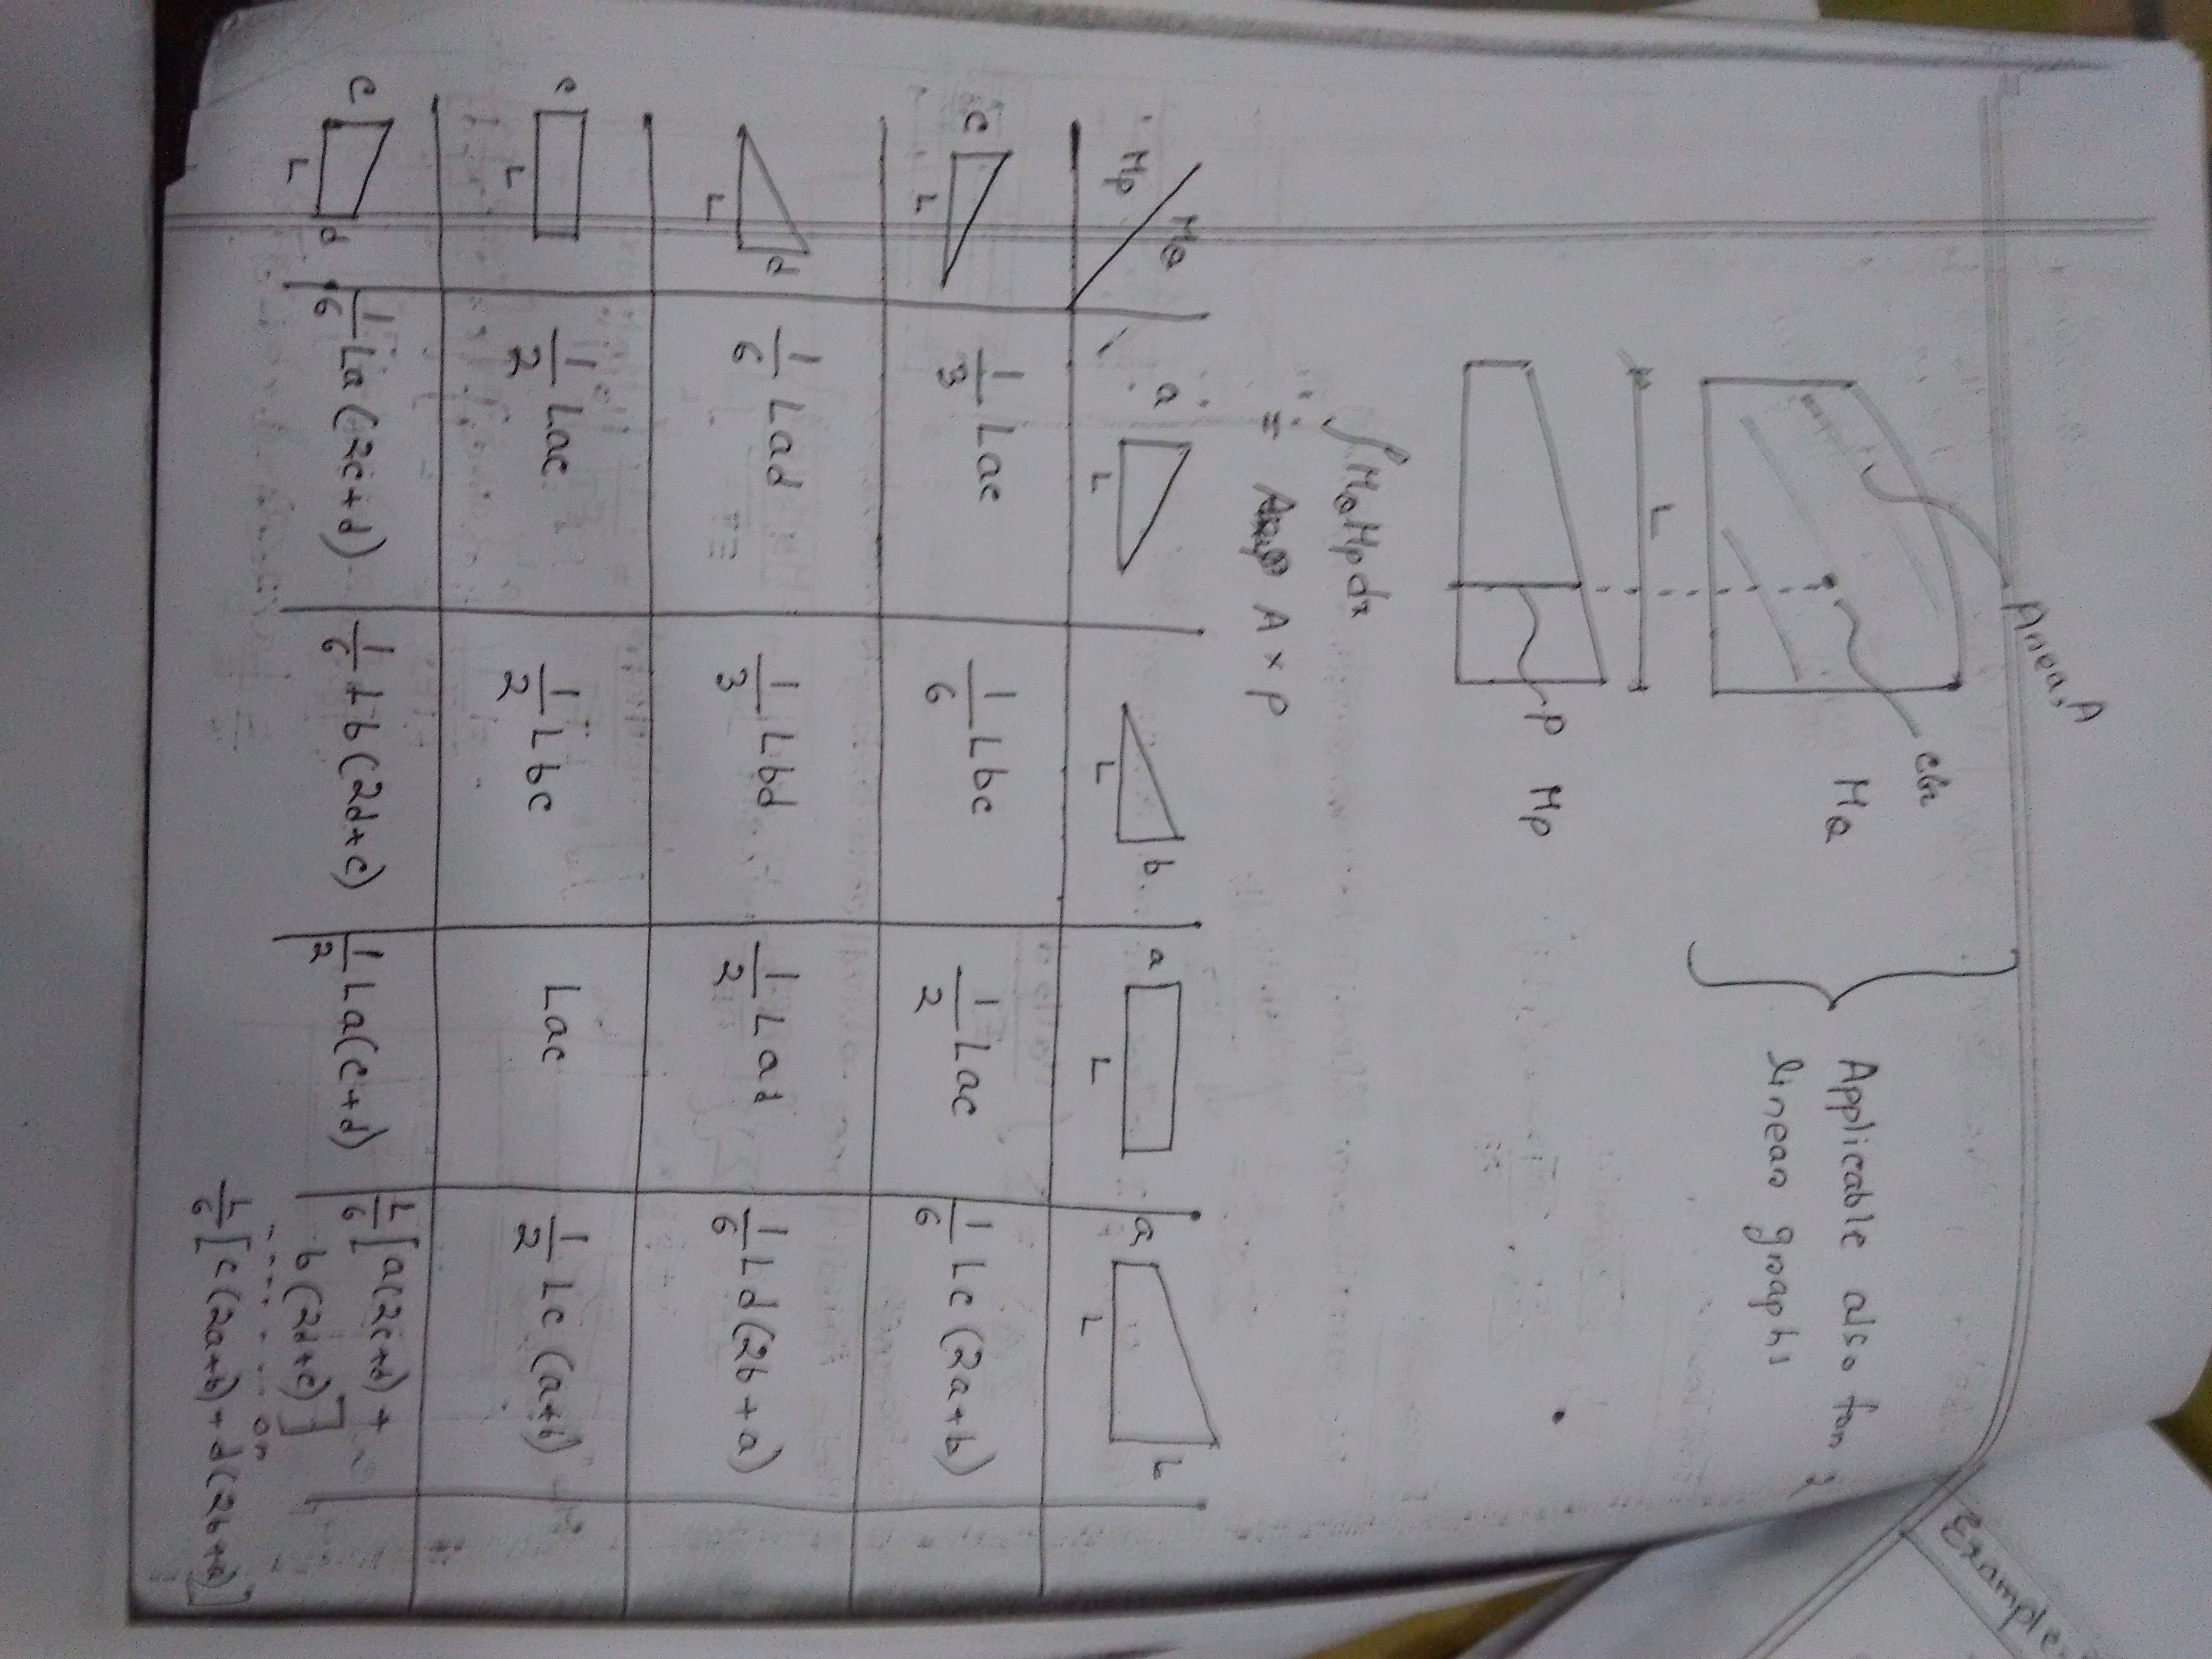 Area, A
cbr
M_Q
L
P M_P
Applicable also for 2
linear graphs
∫M_Q M_P dx
= A × P
M_Q
M_P
a L
L b
a L
a L b
c L
1/3 Lac
1/6 Lbc
1/2 Lac
1/6 Lc (2a+b)
L d
1/6 Lad
1/3 Lbd
1/2 Lad
1/6 Ld (2b+a)
c L
1/2 Lac
1/2 Lbc
Lac
1/2 Lc (a+b)
c L d
1/6 La (2c+d)
1/6 Lb (2d+c)
1/2 La(c+d)
L/6 [a(2c+d) +
b(2d+c)]
or
L/6 [c(2a+b) + d(2b+a)]
Example